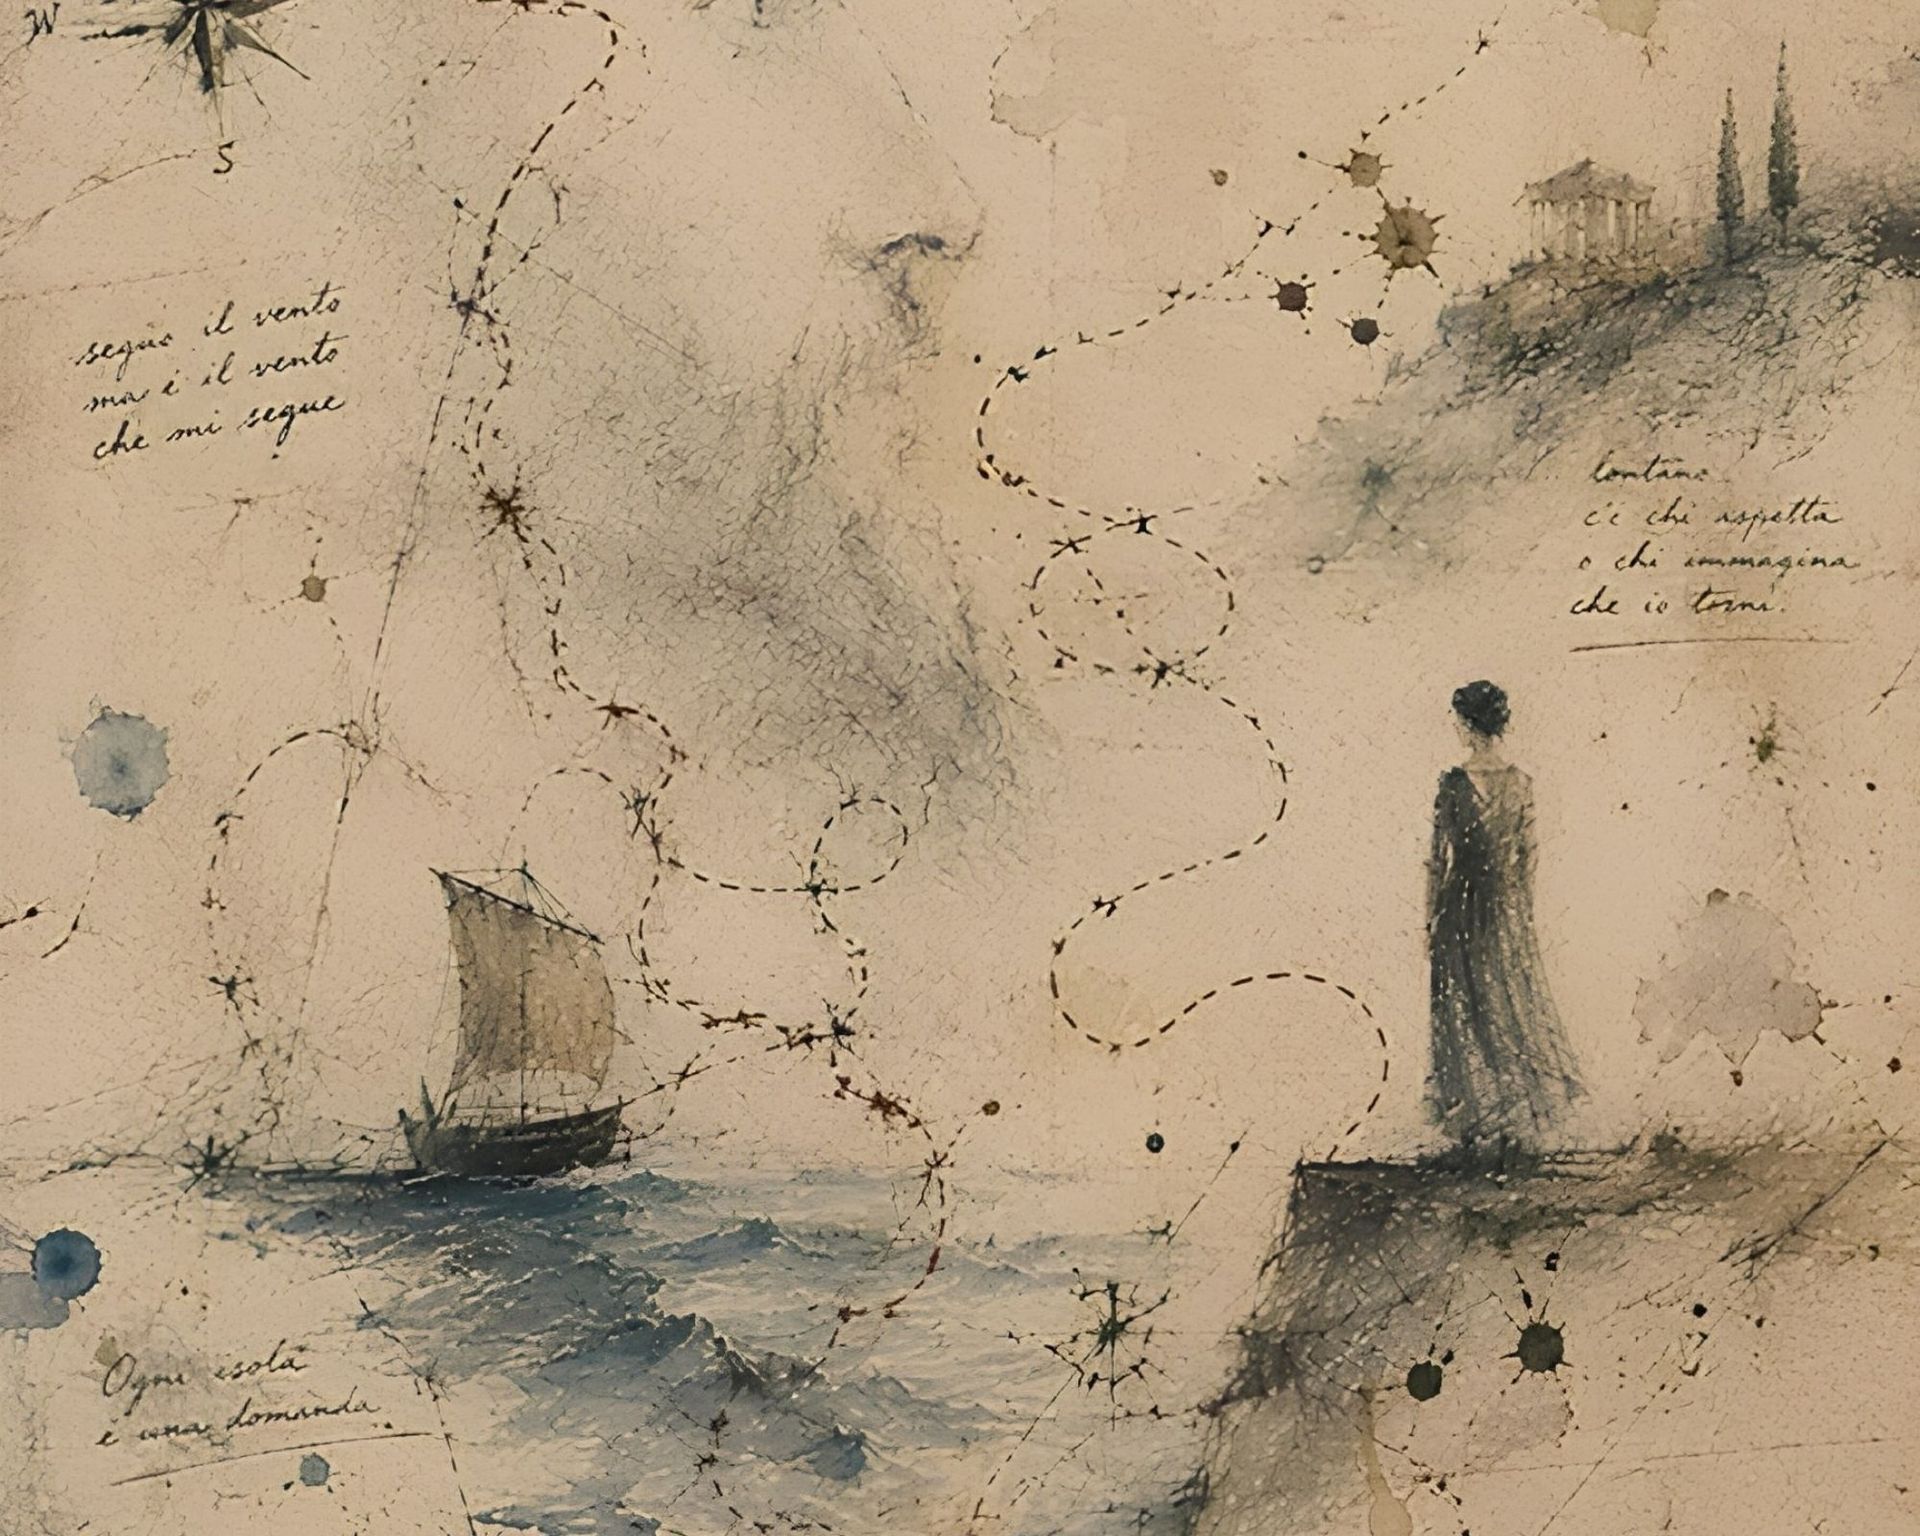 W
S
seguo il vento
ma è il vento
che mi segue
lontano
c'è chi aspetta
o chi immagina
che io torni.
Ogni isola
è una domanda